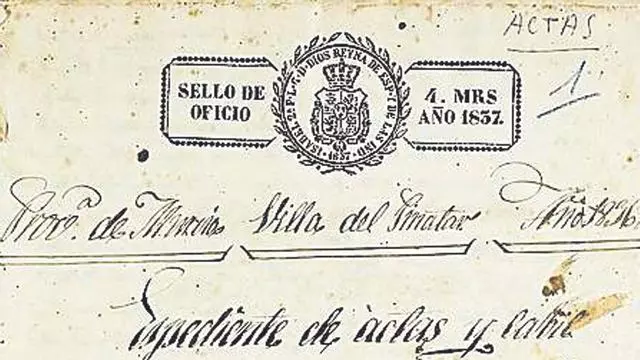 ACTAS
1
SELLO DE
OFICIO
ISABEL 2ª P. L. G. D. DIOS REYNA DE ESP.ª Y DE LAS IND.
1837
4. MRS
AÑO 1837.
Prov.ª de Murcia Villa del Pinatar Año 1836
Espediente de actas y cabil